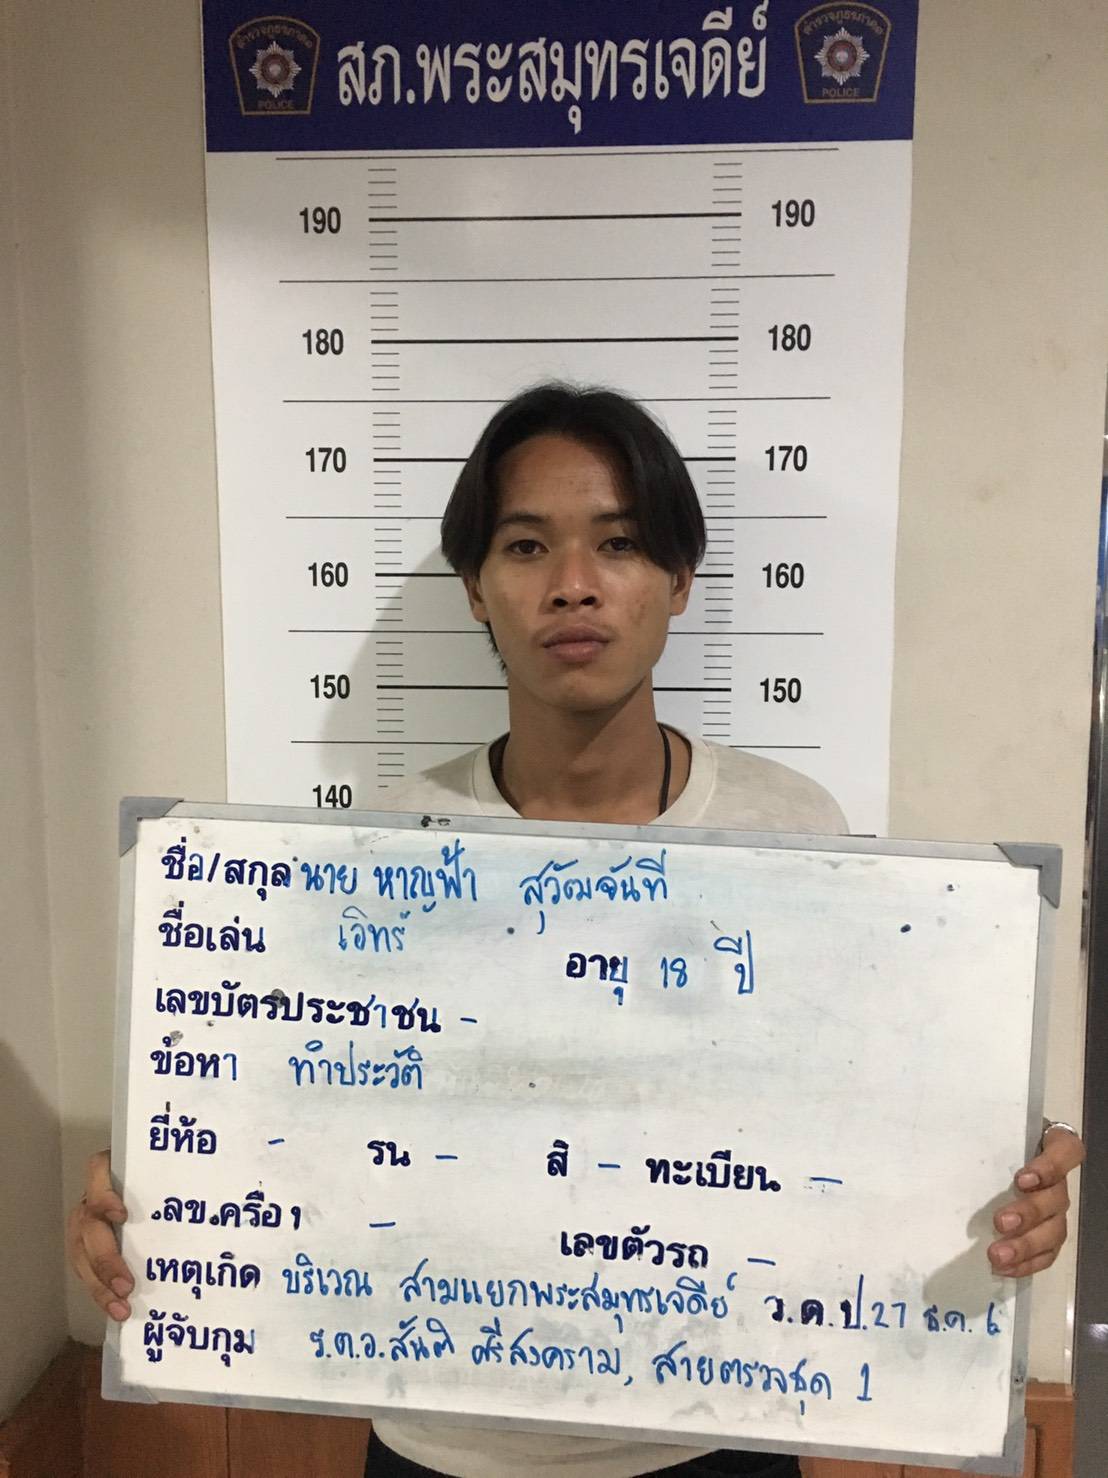 สภ.พระสมุทรเจดีย์
POLICE
POLICE
190 190
180 180
170 170
160 160
150 150
140
ชื่อ/สกุล นาย หาญฟ้า สุวัฒจันที
ชื่อเล่น เอิทร์ อายุ 18 ปี
เลขบัตรประชาชน -
ข้อหา ทำประวัติ
ยี่ห้อ - รน - สี - ทะเบียน -
ลข.ครื่อง - เลขตัวรถ -
เหตุเกิด บริเวณ สามแยกพระสมุทรเจดีย์ ว.ด.ป.27 ธ.ค. 6
ผู้จับกุม ร.ต.อ.สันติ ศรีสงคราม, สายตรวจชุด 1